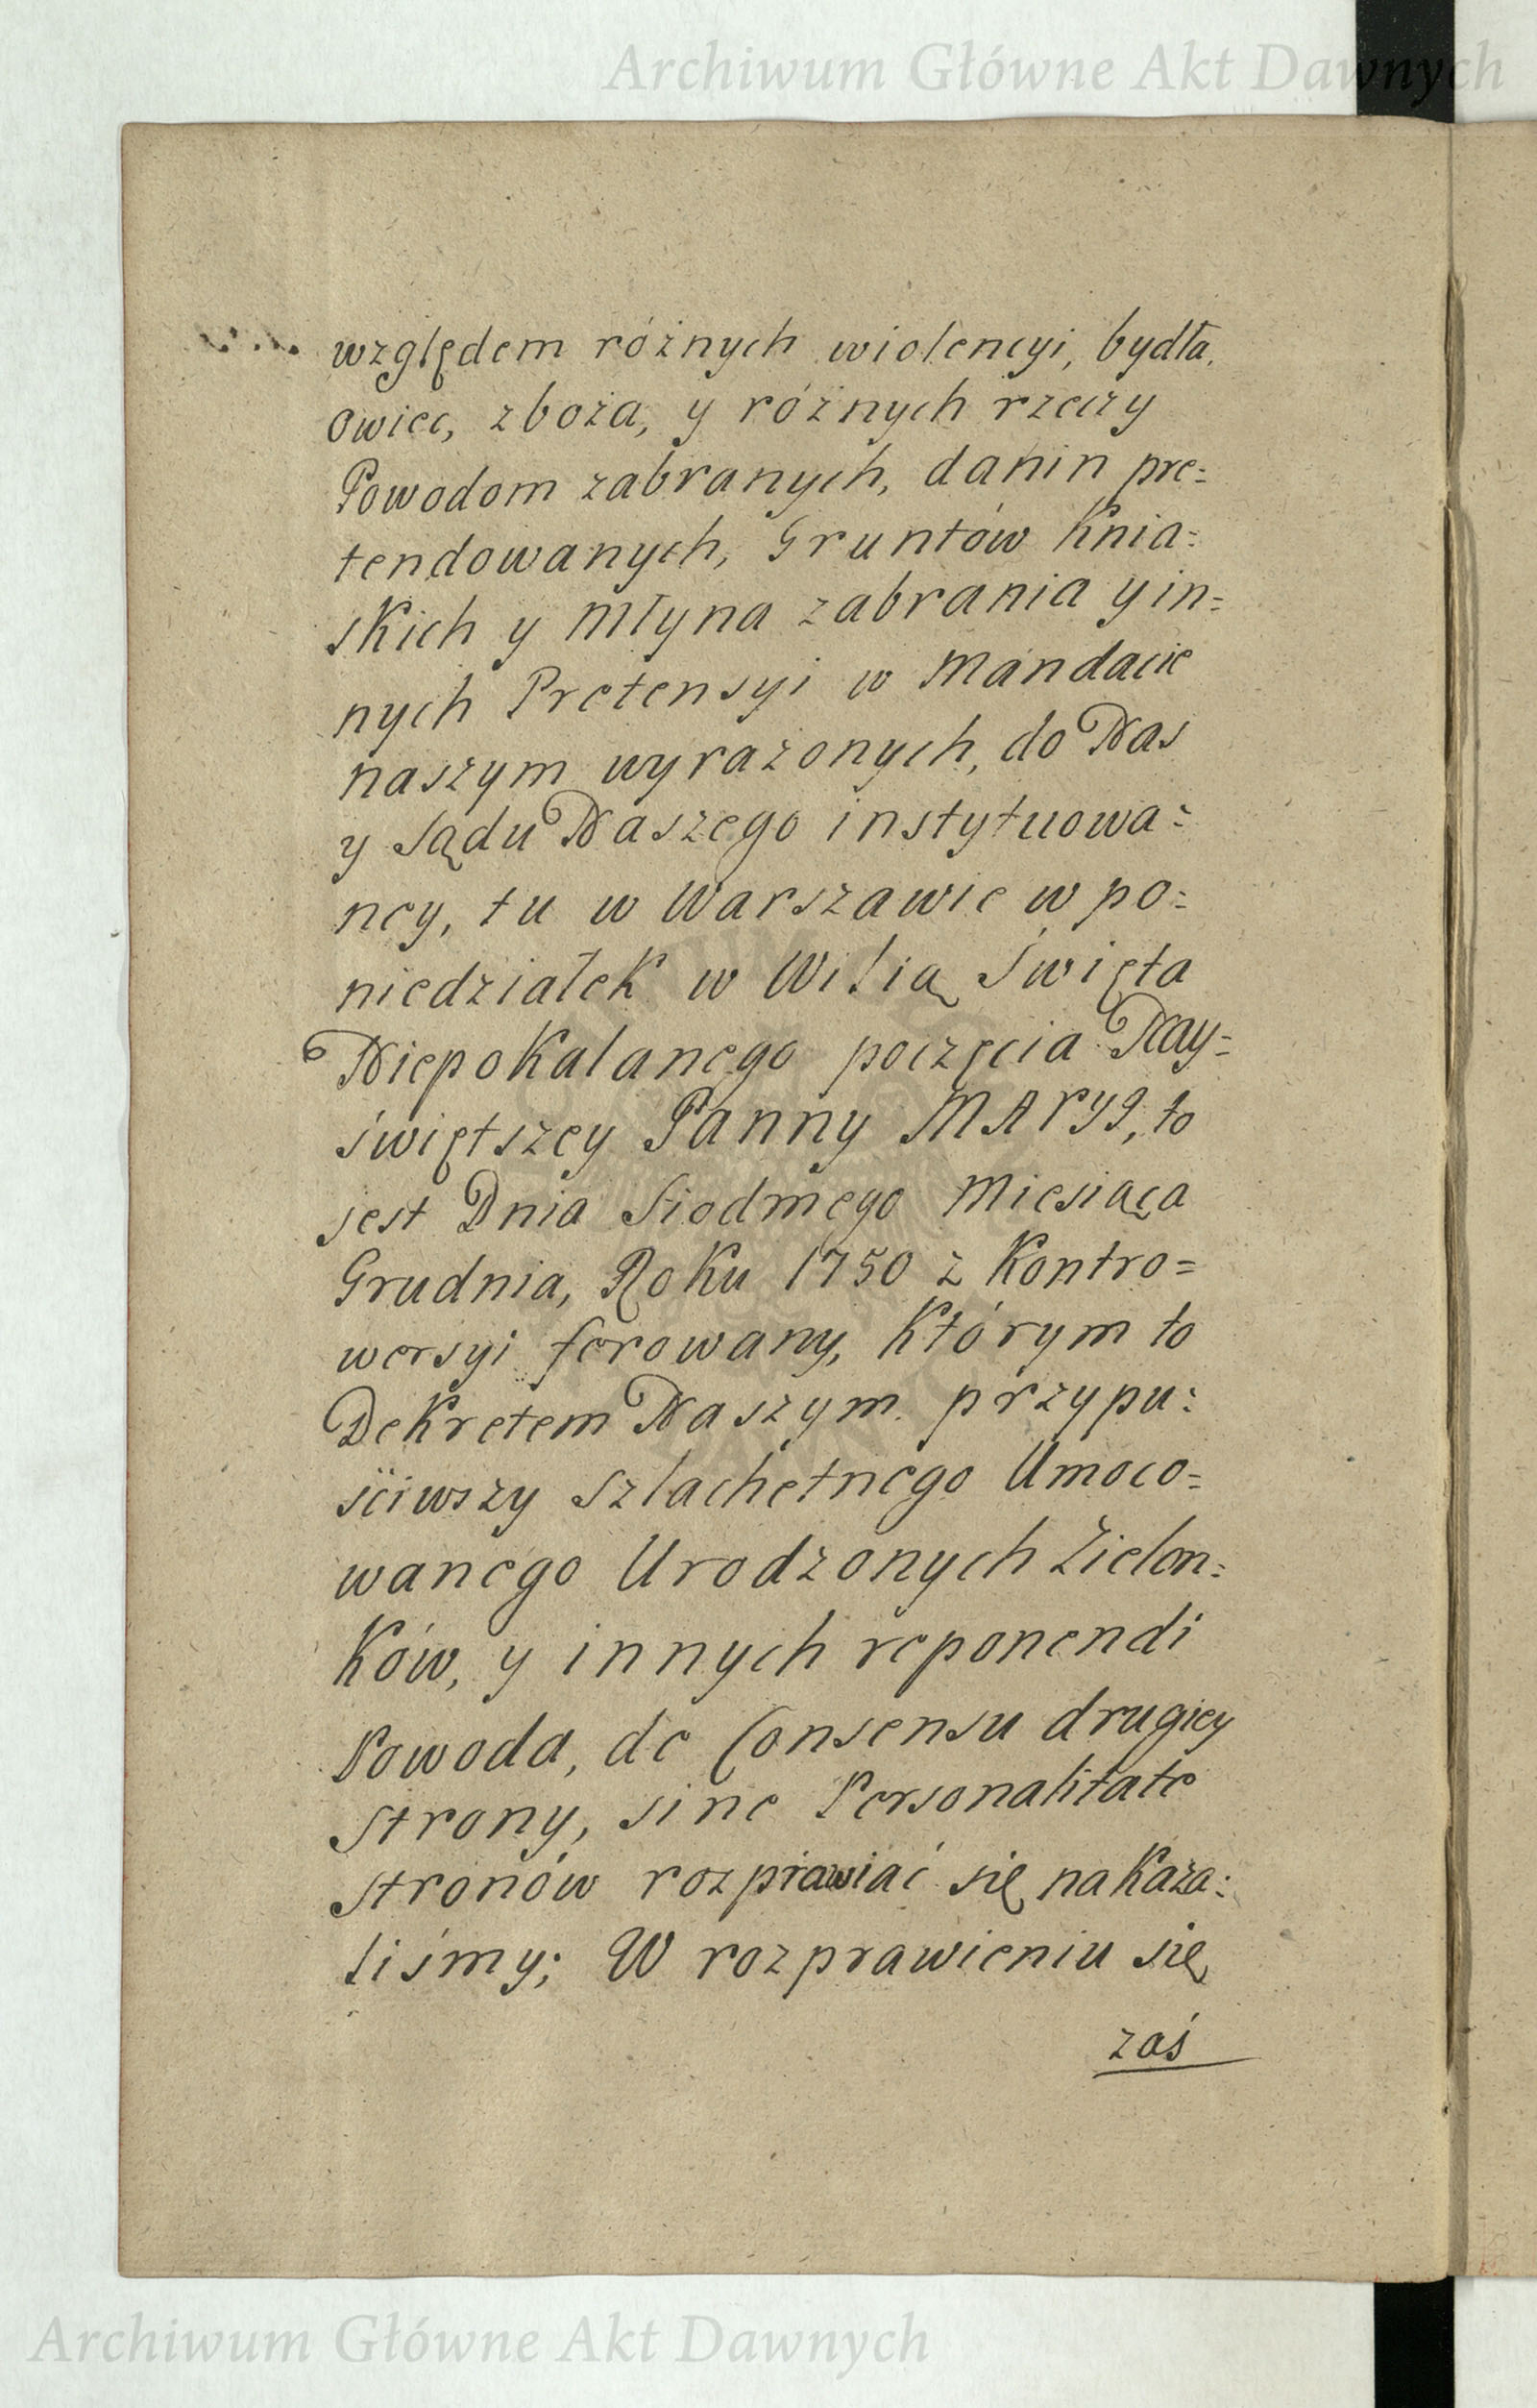 Archiwum Główne Akt Dawnych
względem różnych wiolencyi, bydła,
owiec, zboża, y różnych rzeczy
Powodom zabranych, danin pre=
tendowanych, Gruntów Knia=
skich y Młyna zabrania y in=
nych Pretensyi w Mandacie
naszym wyrażonych, do Nas
y Sądu Naszego instytuowa=
ney, tu w Warszawie w po=
niedziałek w Wilią Święta
Niepokalanego poczęcia Nay=
świętszey Panny MARYI, to
jest Dnia Siodmego Miesiąca
Grudnia, Roku 1750 z Kontro=
wersyi ferowany, Którym to
Dekretem Naszym przypu=
ściwszy Szlachetnego Umoco=
wanego Urodzonych Zielon=
Ków, y innych reponendi
Powoda, de Consensu drugiey
Strony, sine Personalitate
Stronów rozprawiać się nakaza=
liśmy; W rozprawieniu się
zaś
Archiwum Główne Akt Dawnych